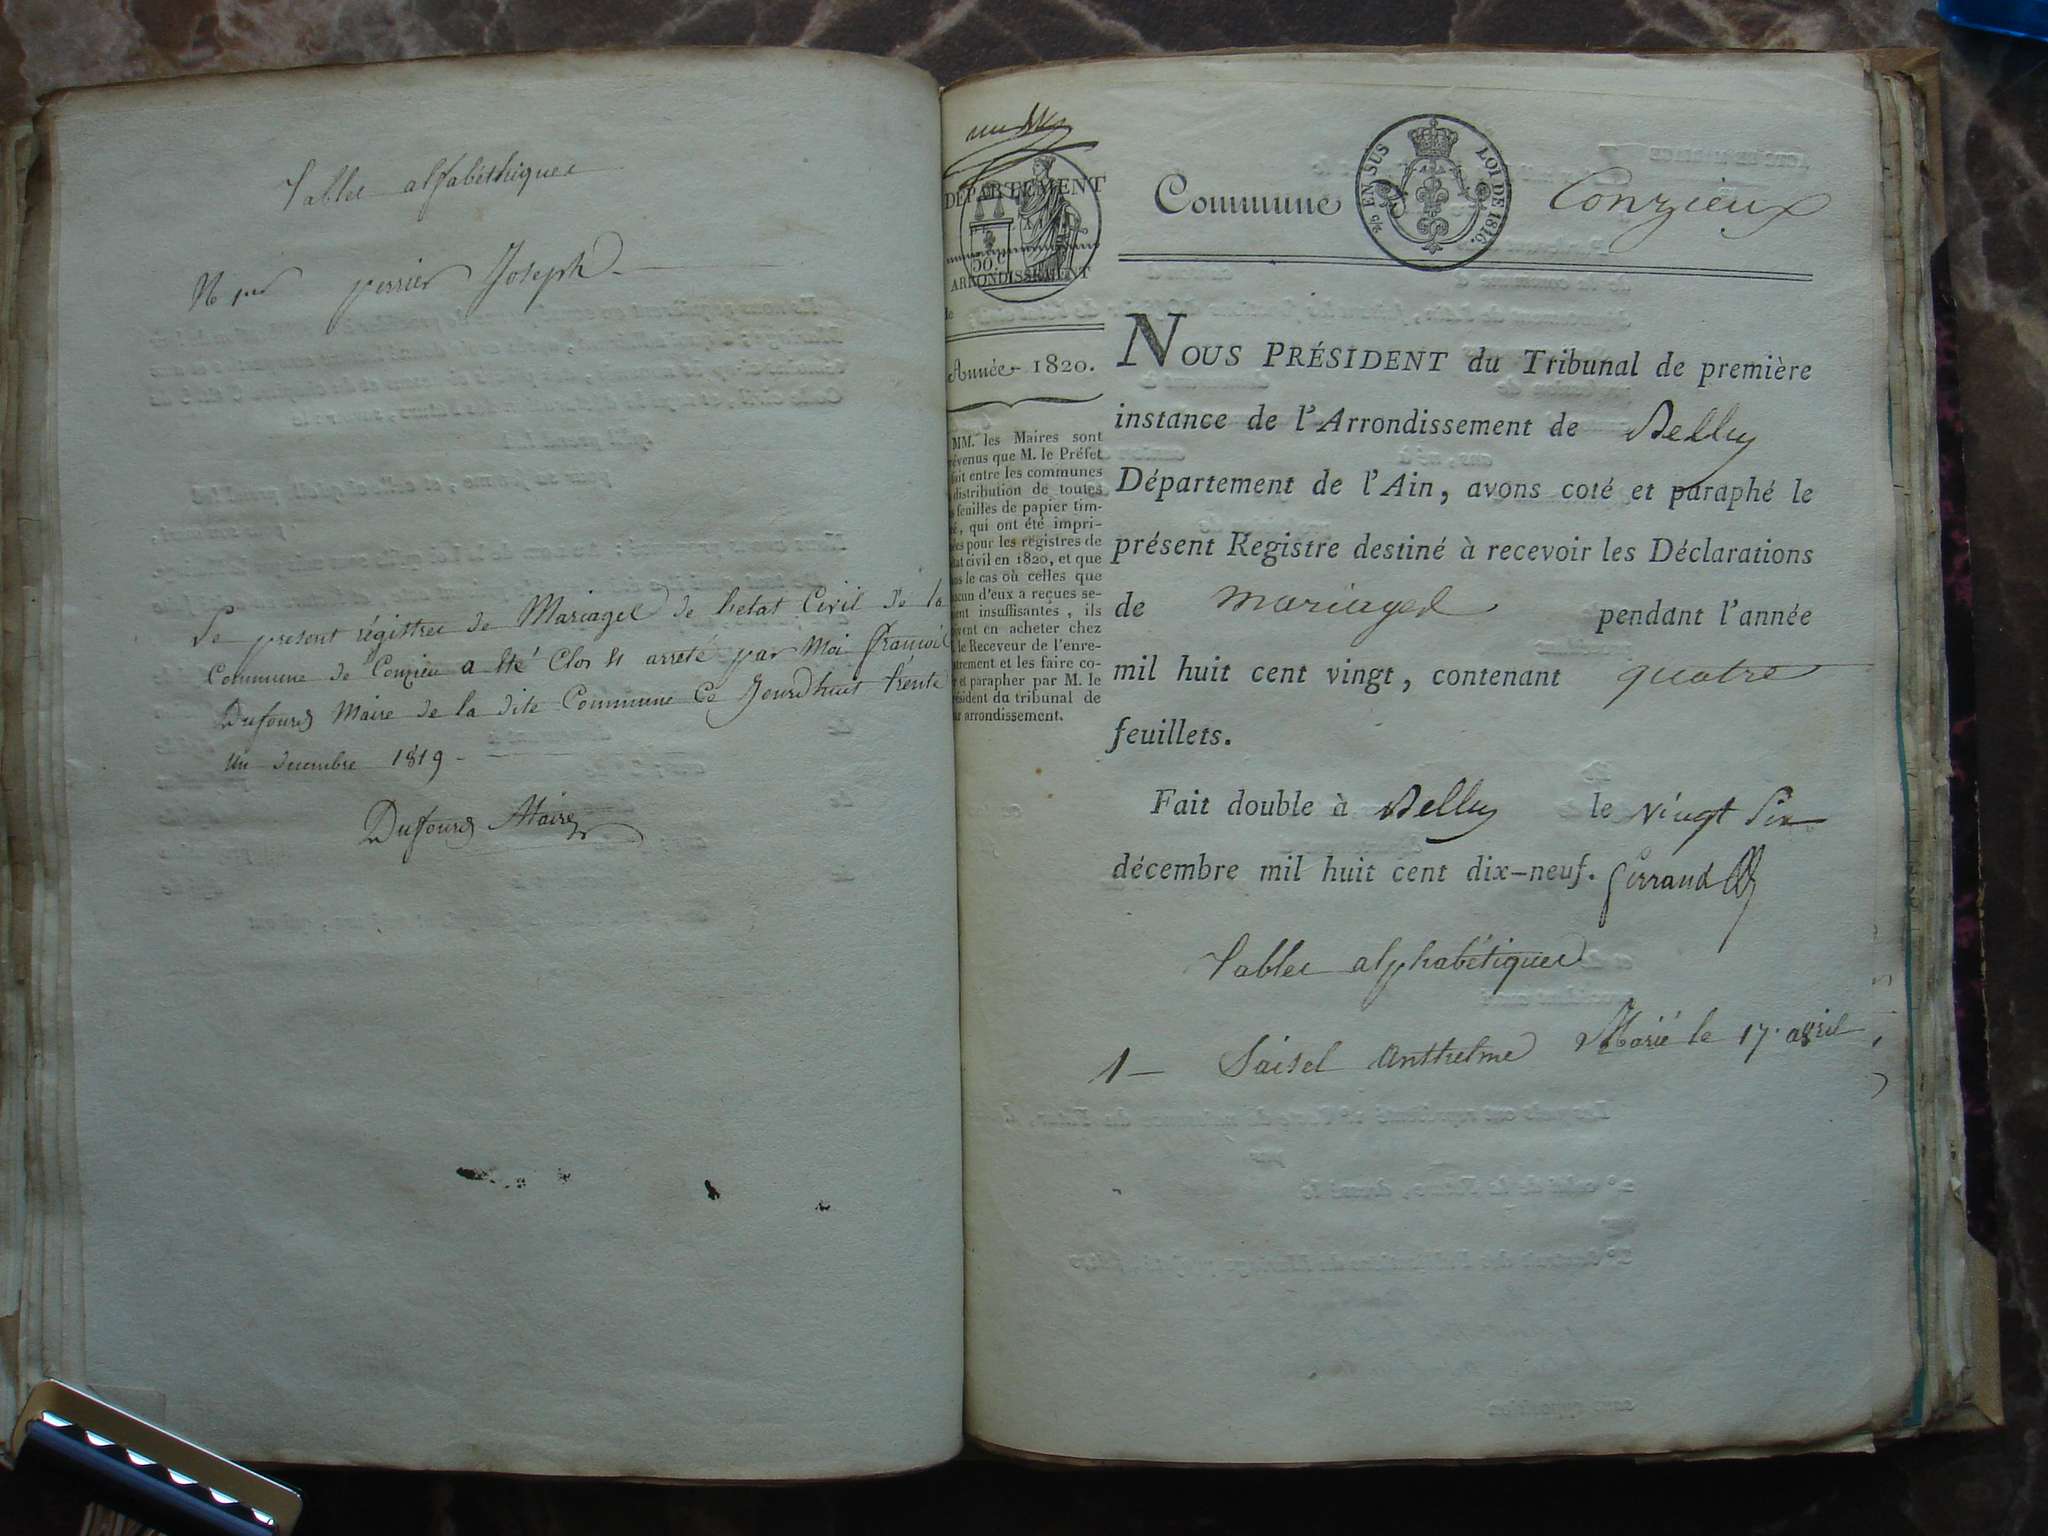 Tables alfabéthiques
perrier Joseph
Le present régistre de Mariages de l'etat Civil de la
Commune de Conzieu a été Clos et arreté par Moi françois
Dufour Maire de la dite Commune Ce Jourdhuit trente
un decembre 1819
Dufour Maire
DÉPARTEMENT
50 C
ARRONDISSEMENT
de
Année 1820.
MM. les Maires sont
révenus que M. le Préfet
fait entre les communes
distribution de toutes
feuilles de papier tim-
é, qui ont été impri-
ées pour les registres de
état civil en 1820, et que
ns le cas où celles que
acun d'eux a reçues se-
ient insuffisantes, ils
oivent en acheter chez
le Receveur de l'enre-
trement et les faire co-
r et parapher par M. le
résident du tribunal de
ur arrondissement.
Commune Conzieux
EN SUS LOI DE 1816.
NOUS PRÉSIDENT du Tribunal de première
instance de l'Arrondissement de Belley
Département de l'Ain, avons coté et paraphé le
présent Registre destiné à recevoir les Déclarations
de mariages pendant l'année
mil huit cent vingt, contenant quatre
feuillets.
Fait double à Belley le vingt six
décembre mil huit cent dix-neuf.
Tables alphabétiques
1 — Saisel Anthelme Marié le 17 avril